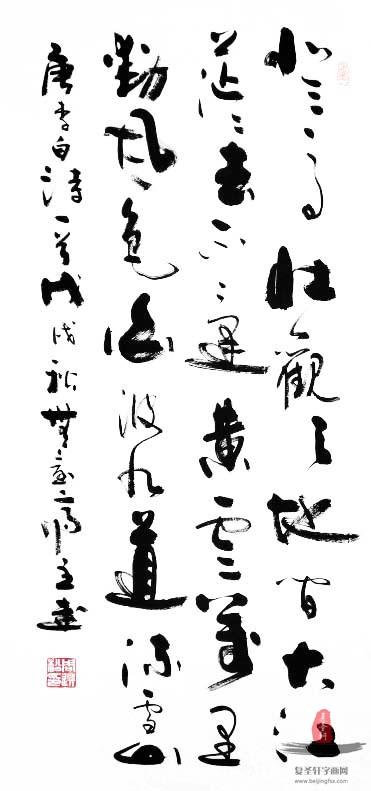 登高壯觀天地間大江
茫茫去不還黃雲萬里
動風色白波九道流雪山
唐李白詩一首戊戌秋
复圣轩字画网
www.beijingfsx.com